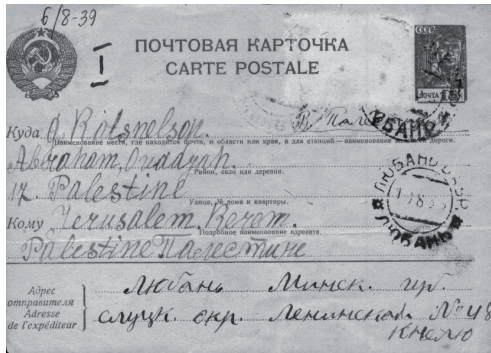 6/8-39
I
ПОЧТОВАЯ КАРТОЧКА
CARTE POSTALE
СССР
ПОЧТА
В. Пале
Куда A. Kotsnelson
Наименование места, где находится почта, и области или края, а для станций — наименование дороги.
Abraham,
Район, село или деревня.
17. Palestine
Улица, № дома и квартиры.
Кому Jerusalem,
Подробное наименование адресата.
Palestine Палестине
ЛЮБАНЬ
ЛЮБАНЬ
Адрес отправителя
Adresse de l'expéditeur
Любань Минск. гр.
слуцк. окр. Ленинская № 48